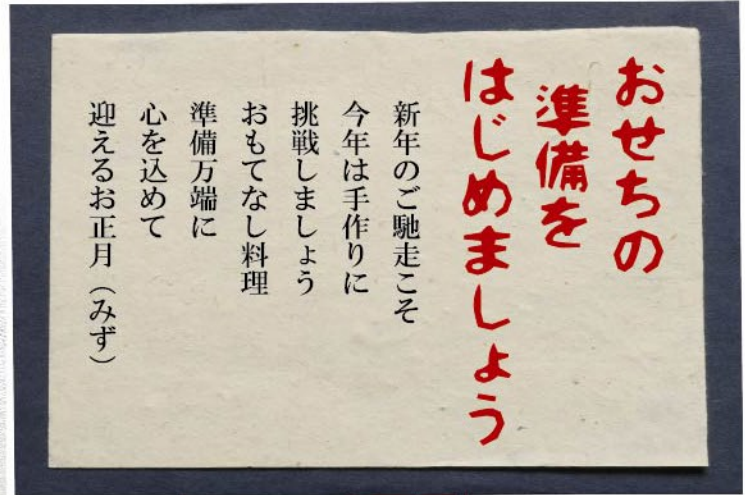 おせちの
準備を
はじめましょう
新年のご馳走こそ
今年は手作りに
挑戦しましょう
おもてなし料理
準備万端に
心を込めて
迎えるお正月（みず）